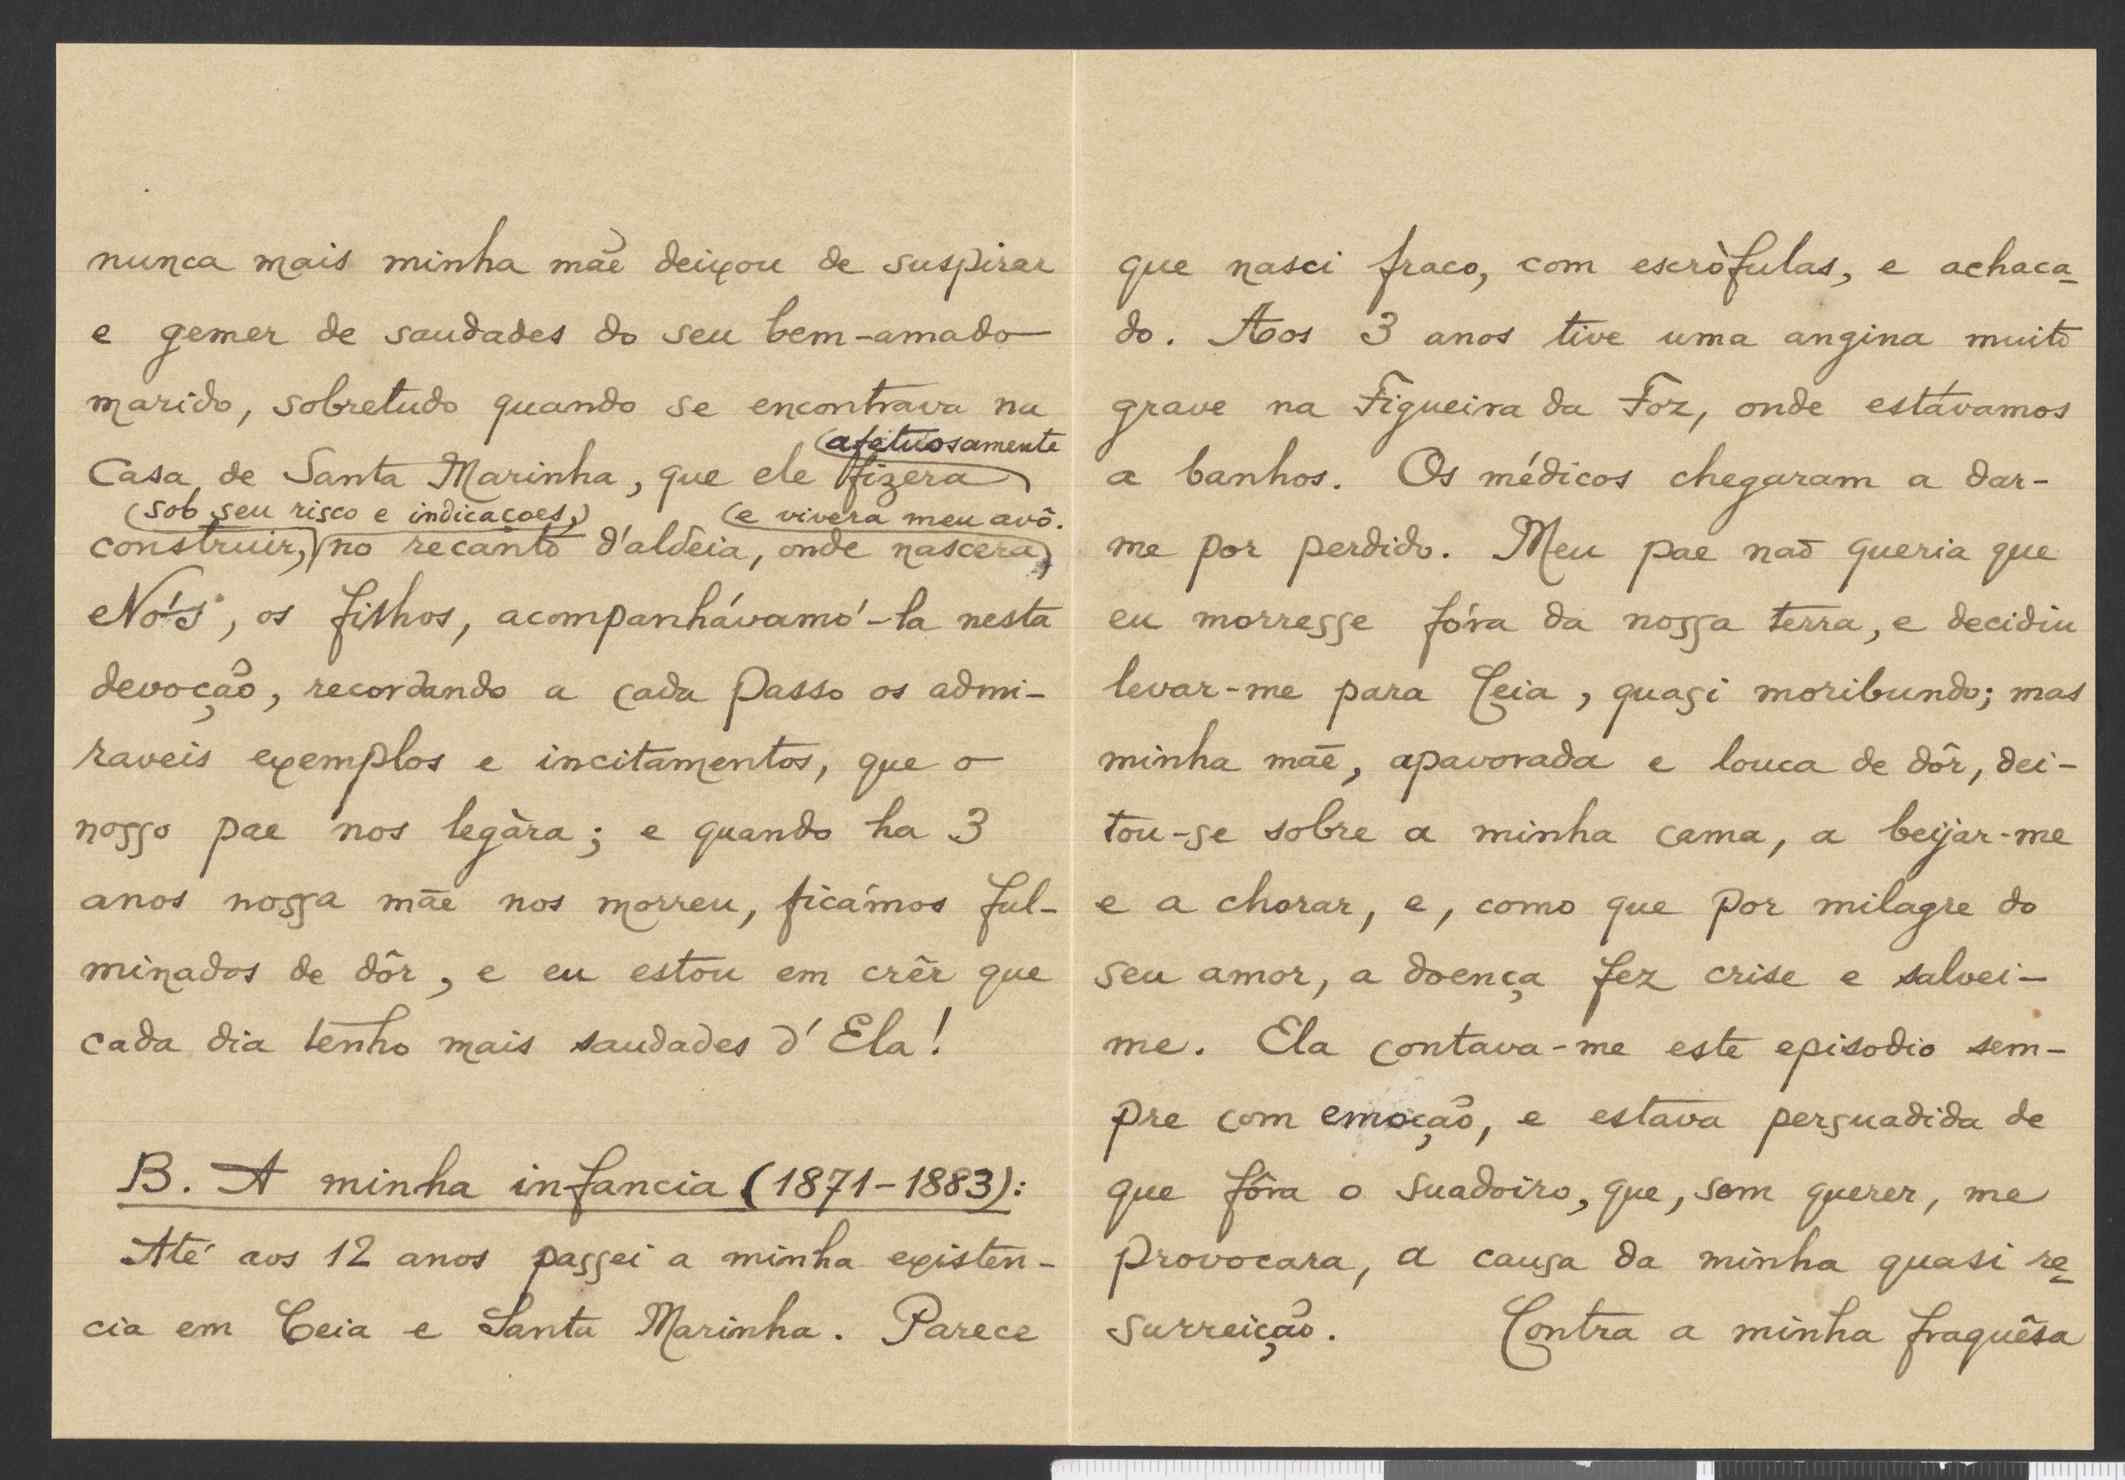 nunca mais minha mãe deixou de suspirar
e gemer de saudades do seu bem-amado
marido, sobretudo quando se encontrava na
(afètuosamente
Casa de Santa Marinha, que ele fizera
(sob seu risco e indicaçoes,) (e vivera meu avô.
construir, no recanto d'aldeia, onde nascera,
e Nós, os filhos, acompanhávamo'-la nesta
devoção, recordando a cada passo os admi-
raveis exemplos e incitamentos, que o
nosso pae nos legàra; e quando ha 3
anos nossa mãe nos morreu, ficámos ful-
minados de dôr, e eu estou em crêr que
cada dia tenho mais saudades d'Ela!
B. A minha infancia (1871-1883):
Até aos 12 anos passei a minha existen-
cia em Ceia e Santa Marinha. Parece
que nasci fraco, com escròfulas, e achaca-
do. Aos 3 anos tive uma angina muito
grave na Figueira da Foz, onde estávamos
a banhos. Os médicos chegaram a dar-
me por perdido. Meu pae não queria que
eu morresse fóra da nossa terra, e decidiu
levar-me para Ceia, quasi moribundo; mas
minha mãe, apavorada e louca de dôr, dei-
tou-se sobre a minha cama, a beijar-me
e a chorar, e, como que por milagre do
seu amor, a doença fez crise e salvei-
me. Ela contava-me este episodio sem-
pre com emoção, e estava persuadida de
que fôra o suadoiro, que, sem querer, me
provocara, a causa da minha quasi re-
surreição. Contra a minha fraquêsa